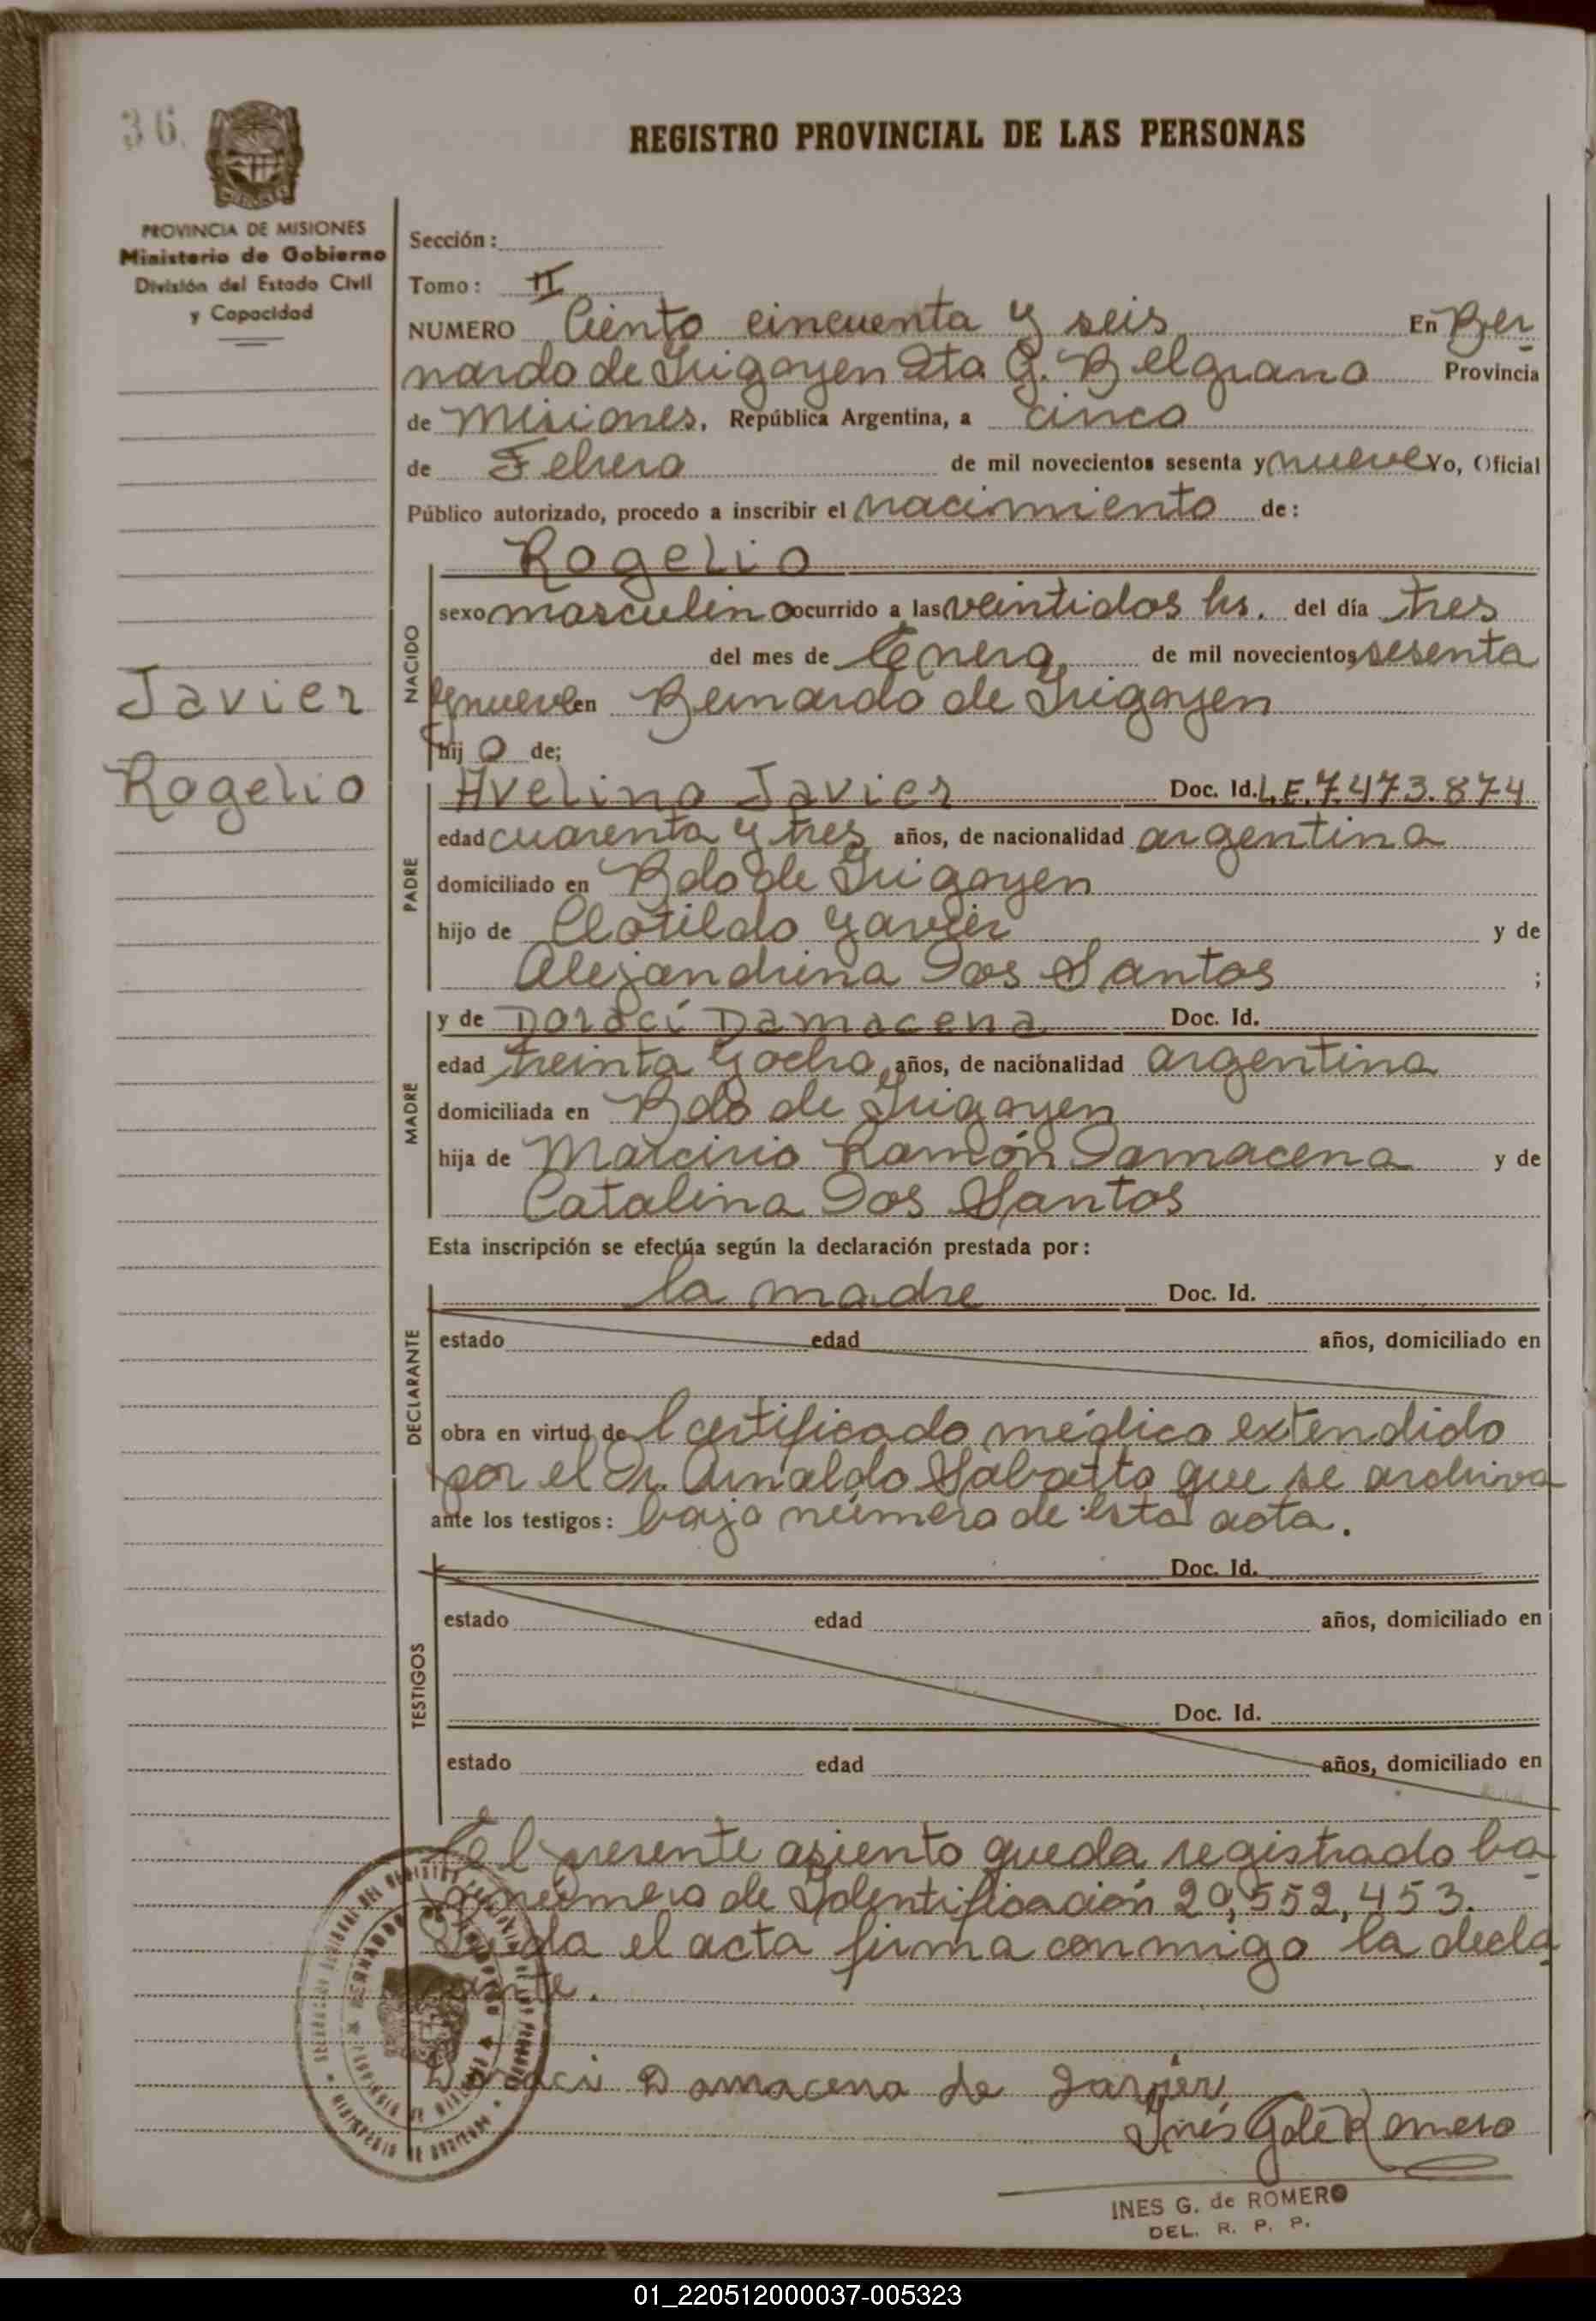 36.
REGISTRO PROVINCIAL DE LAS PERSONAS
PROVINCIA DE MISIONES
Ministerio de Gobierno
División del Estado Civil
y Capacidad
Javier
Rogelio
Sección:
Tomo: II
NUMERO Ciento cincuenta y seis En Ber
nardo de Irigoyen Dto G. Belgrano Provincia
de Misiones. República Argentina, a cinco
de Febrero de mil novecientos sesenta y nueve Yo, Oficial
Público autorizado, procedo a inscribir el nacimiento de:
Rogelio
NACIDO
sexo masculino ocurrido a las veintidos hs. del día tres
del mes de Enero de mil novecientos sesenta
y nueve en Bernardo de Irigoyen
hij o de;
PADRE
Avelino Javier Doc. Id. L.E. 7.473.874
edad cuarenta y tres años, de nacionalidad argentina
domiciliado en Bdo de Irigoyen
hijo de Clotildo Yavier y de
Alejandrina Dos Santos ;
MADRE
y de Doraci Damacena Doc. Id.
edad treinta y ocho años, de nacionalidad argentina
domiciliada en Bdo de Irigoyen
hija de Marcirio Ramón Damacena y de
Catalina Dos Santos
Esta inscripción se efectúa según la declaración prestada por:
DECLARANTE
la madre Doc. Id.
estado edad años, domiciliado en
obra en virtud de l certificado médico extendido
por el Dr. Arnaldo Sabatto que se archiva
ante los testigos: bajo número de esta acta.
TESTIGOS
Doc. Id.
estado edad años, domiciliado en
Doc. Id.
estado edad años, domiciliado en
El presente asiento queda registrado ba
jo número de Identificación 20,552,453.
el acta firma conmigo la decla
rante.
Doraci Damacena de Javier
Inés G. de Romero
INES G. de ROMERO
DEL. R. P. P.
01_220512000037-005323